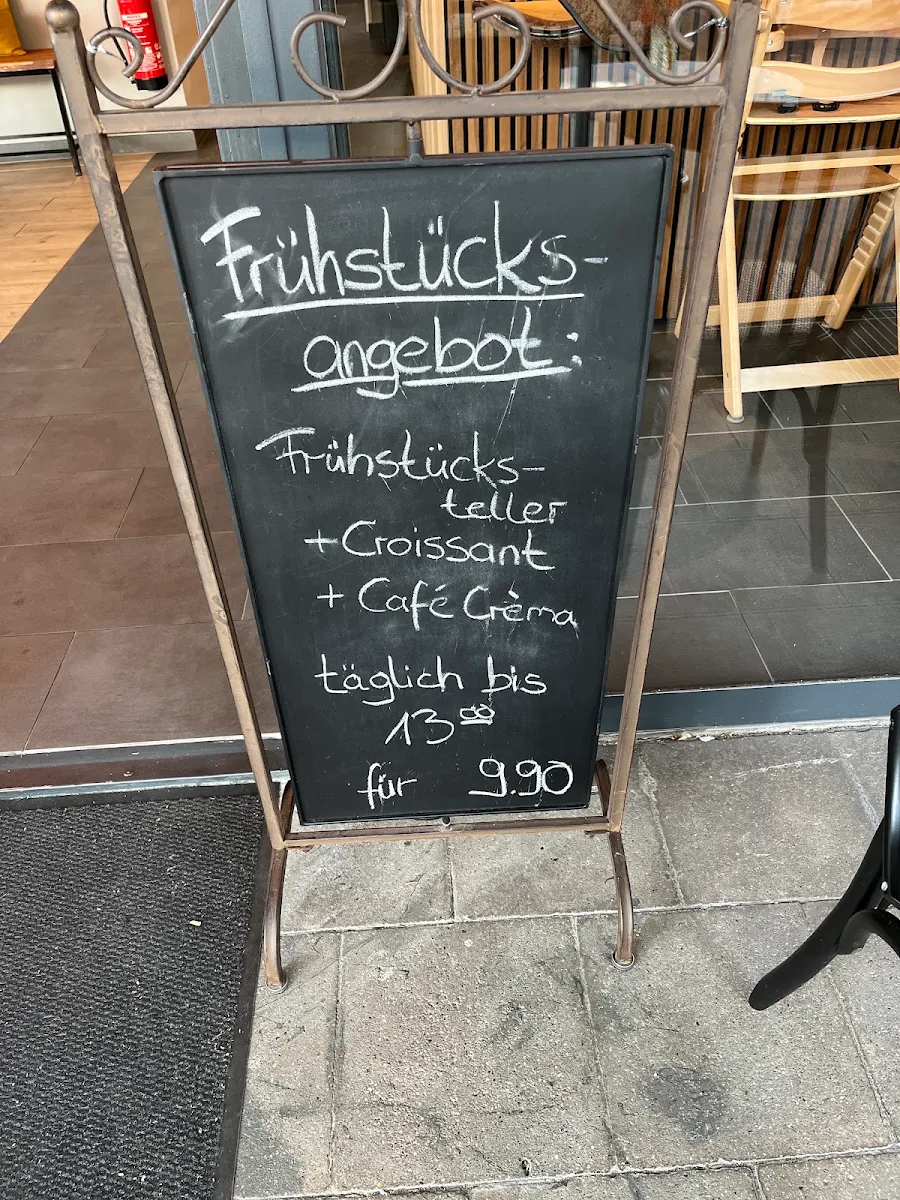 Frühstücks-
angebot:
Frühstücks-
teller
+ Croissant
+ Café Crèma
täglich bis
13⁰⁰
für 9.90